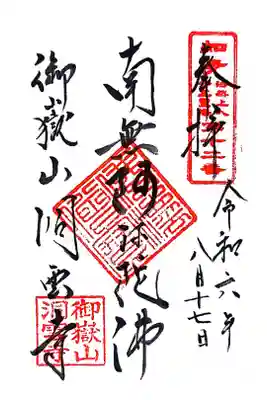 奉拝
令和六年
八月十七日
南無阿弥陀佛
御嶽山洞雲寺
御嶽山
洞雲寺